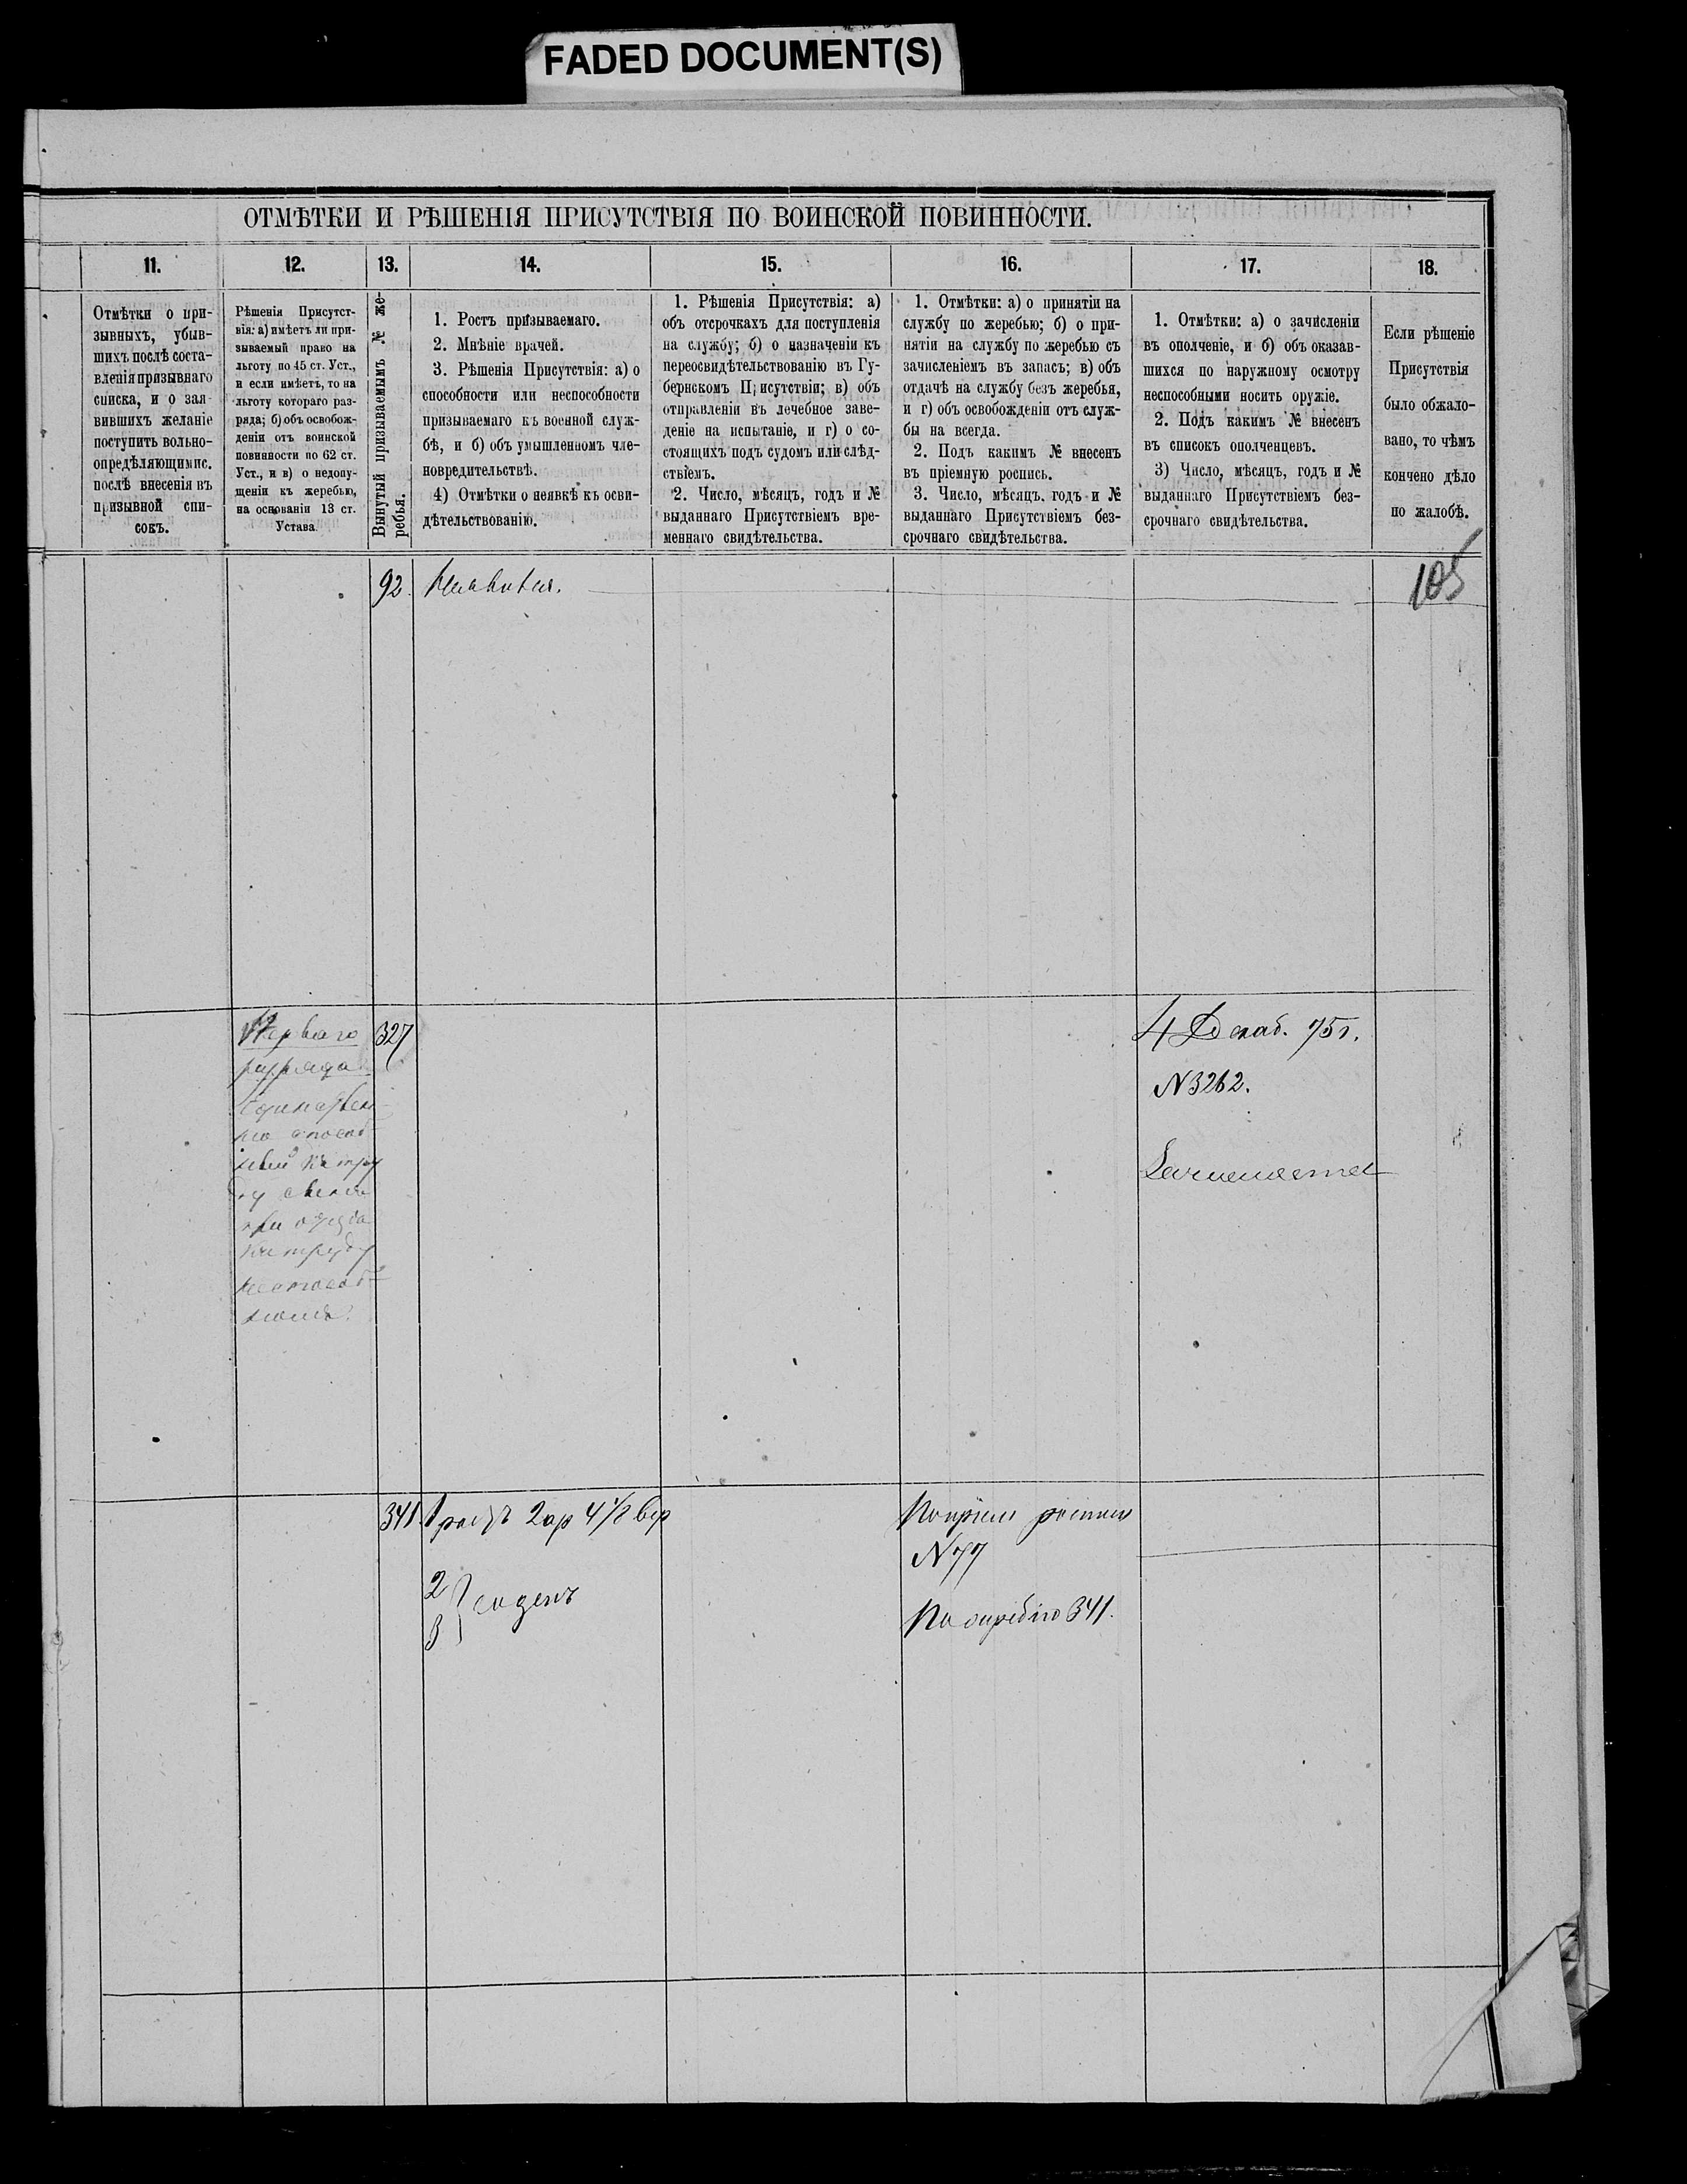 FADED DOCUMENT(S)
ОТМѢТКИ И РѢШЕНІЯ ПРИСУТСТВІЯ ПО ВОИНСКОЙ ПОВИННОСТИ.
11.
Отмѣтки о при-
зывныхъ, убыв-
шихъ послѣ соста-
вленія призывнаго
списка, и о зая
вившихъ желаніе
поступить вольно-
опредѣляющимис.
послѣ внесенія въ
призывной спи-
сокъ.
12.
Рѣшенія Присутст-
вія: а) имѣетъ ли при-
зываемый право на
льготу по 45 ст. Уст.,
и если имѣетъ, то на
льготу котораго раз-
ряда; б) объ освобож-
деніи отъ воинской
повинности по 62 ст.
Уст., и в) о недопу-
щеніи къ жеребью,
на основаніи 13 ст.
Устава.
13.
Вынутый призываемымъ № же-
ребья.
14.
1. Ростъ призываемаго.
2. Мнѣніе врачей.
3. Рѣшенія Присутствія: а) о
способности или неспособности
призываемаго къ военной служ-
бѣ, и б) объ умышленномъ чле-
новредительствѣ.
4) Отмѣтки о неявкѣ къ осви-
дѣтельствованію.
15.
1. Рѣшенія Присутствія: а)
объ отсрочкахъ для поступленія
на службу; б) о назначеніи къ
переосвидѣтельствованію въ Гу-
бернскомъ Присутствіи; в) объ
отправленіи въ лечебное заве-
деніе на испытаніе, и г) о со-
стоящихъ подъ судомъ или слѣд-
ствіемъ.
2. Число, мѣсяцъ, годъ и №
выданнаго Присутствіемъ вре-
меннаго свидѣтельства.
16.
1. Отмѣтки: а) о принятіи на
службу по жеребью; б) о при-
нятіи на службу по жеребью съ
зачисленіемъ въ запасъ; в) объ
отдачѣ на службу безъ жеребья,
и г) объ освобожденіи отъ служ-
бы на всегда.
2. Подъ какимъ № внесенъ
въ пріемную роспись.
3. Число, мѣсяцъ, годъ и №
выданнаго Присутствіемъ без-
срочнаго свидѣтельства.
17.
1. Отмѣтки: а) о зачисленіи
въ ополченіе, и б) объ оказав-
шихся по наружному осмотру
неспособными носить оружіе.
2. Подъ какимъ № внесенъ
въ списокъ ополченцевъ.
3) Число, мѣсяцъ, годъ и №
выданнаго Присутствіемъ без-
срочнаго свидѣтельства.
18.
Если рѣшеніе
Присутствія
было обжало-
вано, то чѣмъ
кончено дѣло
по жалобѣ.
92.
Неявился.
105
Перваго
разряда
Единствен-
но способ-
ный къ тру
ду
при отцѣ
къ труду
неспособ-
номъ.
327
4 Декаб. 75 г.
N 3262.
341.
1 ростъ 2 ар 4 1/2 вер
2
3
годенъ
По пріем росписи
N 77
По жребію 341.